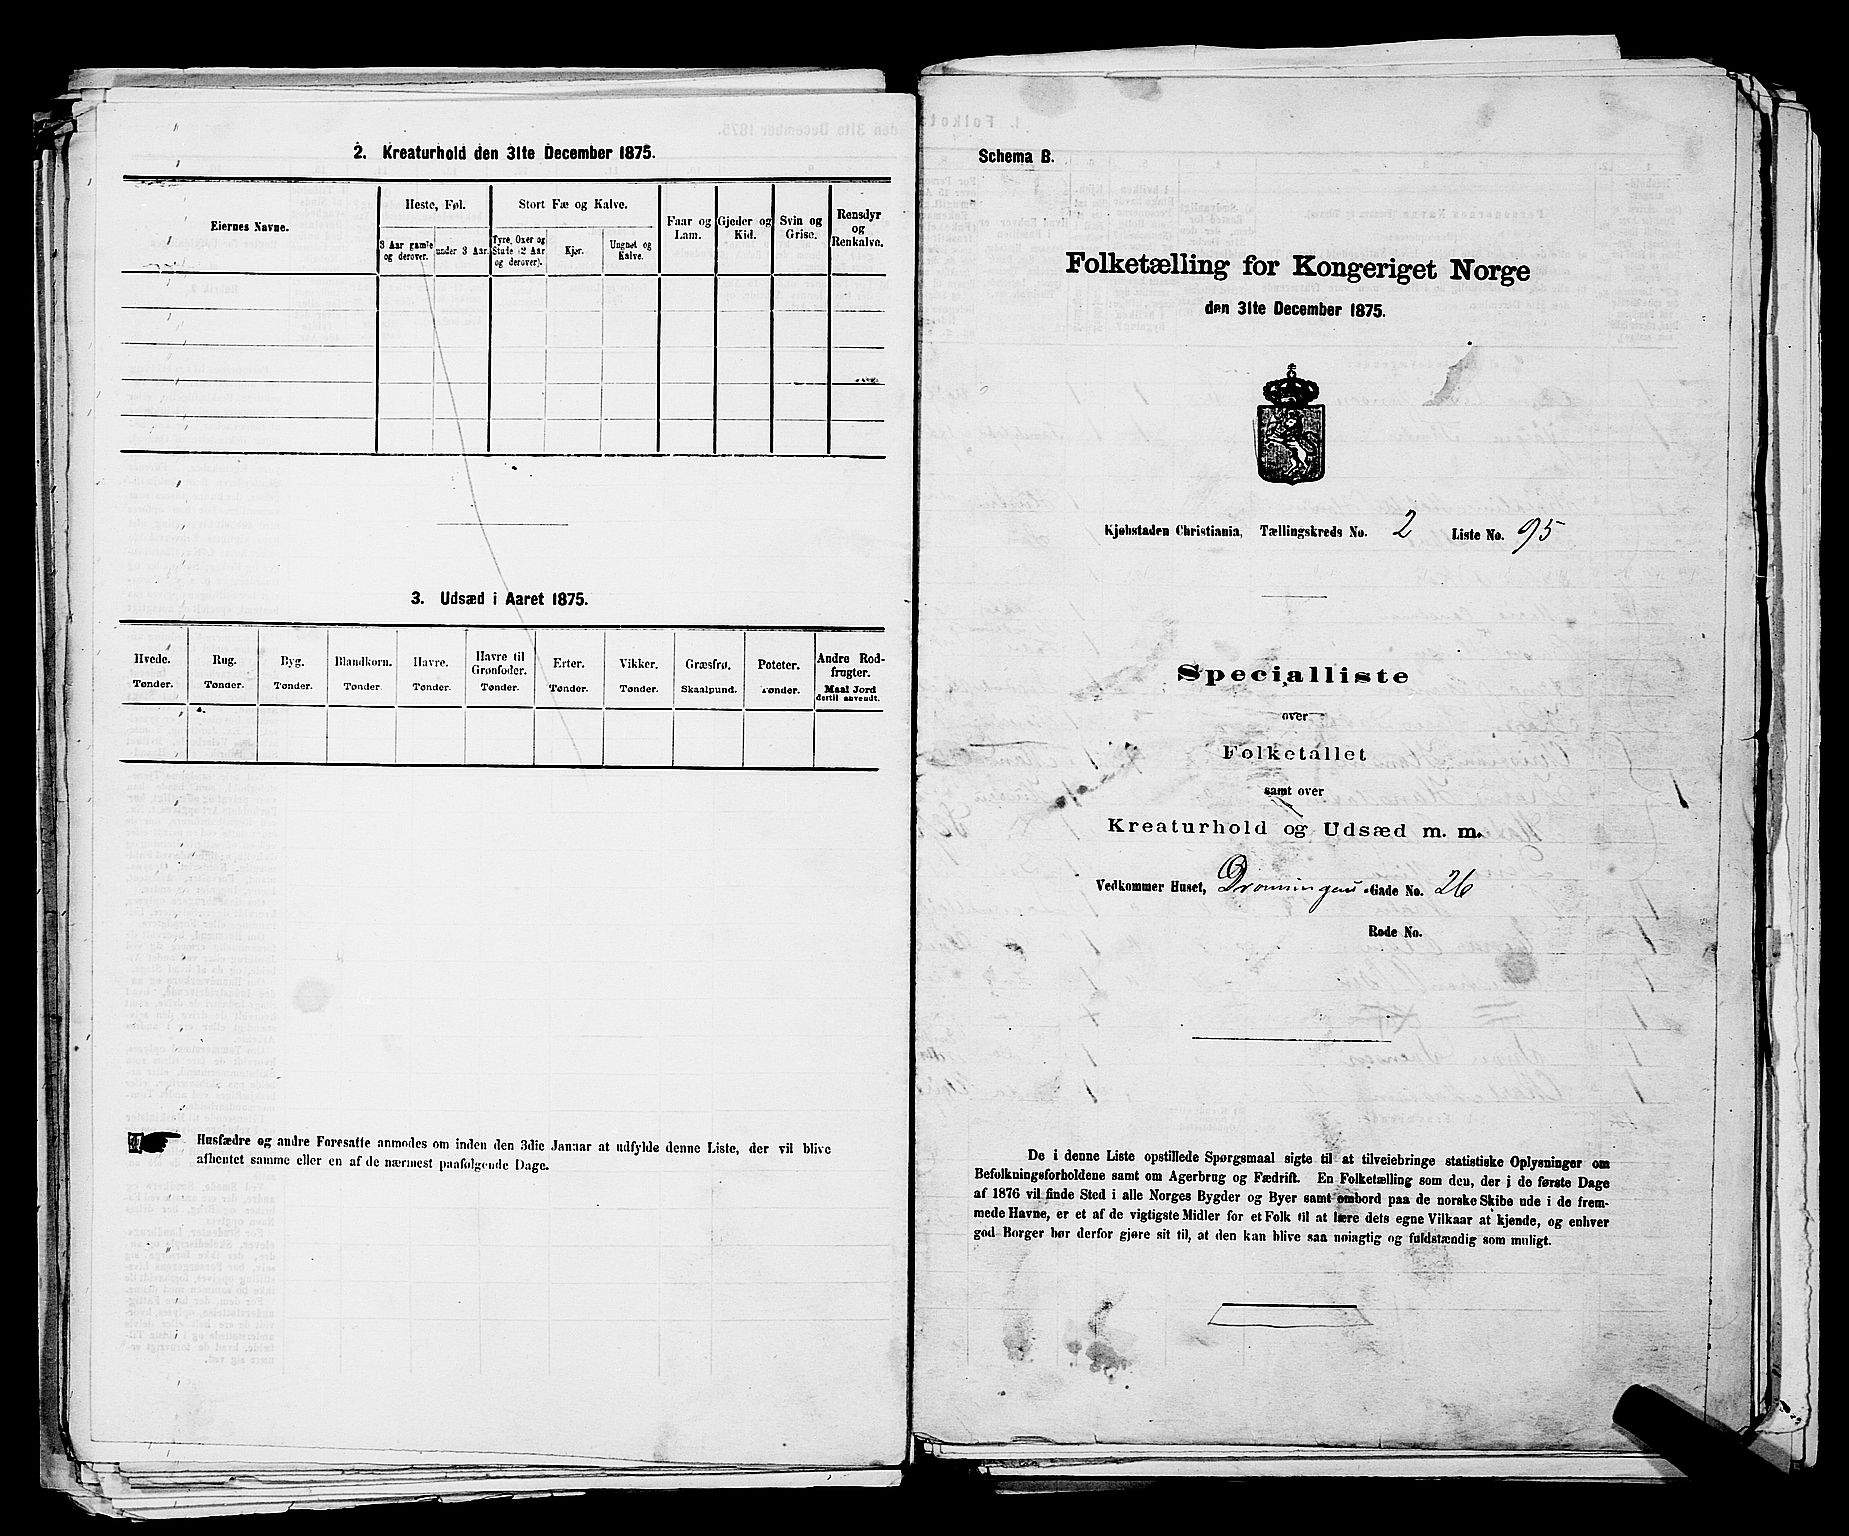 2. Kreaturhold den 31te December 1875.
Eiernes Navne.
Heste, Føl.
3 Aar gamle og derover.
under 3 Aar.
Stort Fæ og Kalve.
Tyre, Oxer og Stude (2 Aar og derover).
Kjør.
Ungnøt og Kalve.
Faar og Lam.
Gjeder og Kid.
Svin og Grise.
Rensdyr og Renkalve.
3. Udsæd i Aaret 1875.
Hvede.
Tønder.
Rug.
Tønder.
Byg.
Tønder.
Blandkorn.
Tønder.
Havre.
Tønder.
Havre til Grønfoder.
Tønder.
Erter.
Tønder.
Vikker.
Tønder.
Græsfrø.
Skaalpund.
Poteter.
Tønder.
Andre Rodfrugter.
Maal Jord dertil anvendt.
Husfædre og andre Foresatte anmodes om inden den 3die Januar at udfylde denne Liste, der vil blive
afhentet samme eller en af de nærmest paafølgende Dage.
Schema B.
Folketælling for Kongeriget Norge
den 31te December 1875.
Kjøbstaden Christiania, Tællingskreds No. 2 Liste No. 95
Specialliste
over
Folketallet
samt over
Kreaturhold og Udsæd m. m.
Vedkommer Huset, Dronningens Gade No. 26
Rode No.
De i denne Liste opstillede Spørgsmaal sigte til at tilveiebringe statistiske Oplysninger om
Befolkningsforholdene samt om Agerbrug og Fædrift. En Folketælling som den, der i de første Dage
af 1876 vil finde Sted i alle Norges Bygder og Byer samt ombord paa de norske Skibe ude i de frem-
mede Havne, er et af de vigtigste Midler for et Folk til at lære dets egne Vilkaar at kjende, og enhver
god Borger bør derfor gjøre sit til, at den kan blive saa nøiagtig og fuldstændig som muligt.